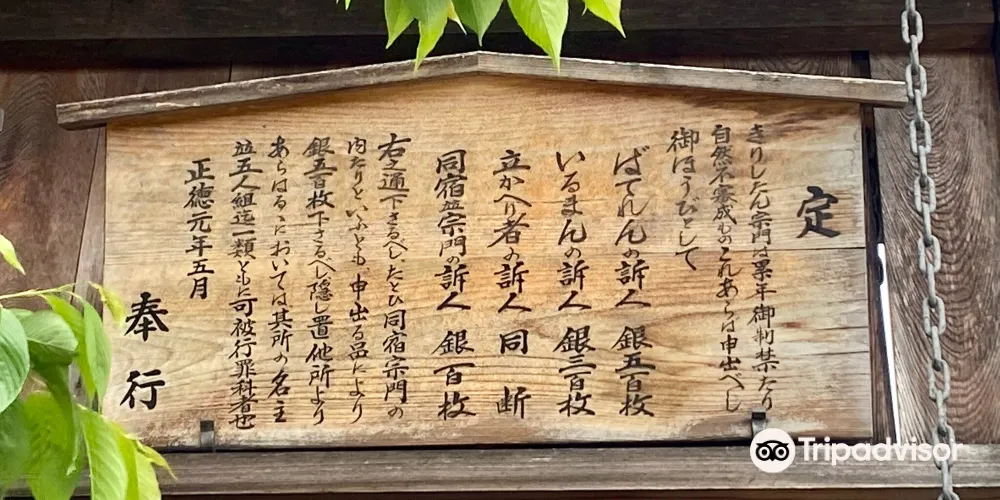 定
きりしたん宗門は累年御制禁たり
自然不審成ものこれあらは申出へし
御ほうびとして
ばてれんの訴人 銀五百枚
いるまんの訴人 銀三百枚
立かへり者の訴人 同断
同宿並宗門の訴人 銀百枚
右之通下さるへしたとひ同宿宗門の
内たりといふとも申出る品により
銀五百枚下さるべし隠し置他所より
あらはるゝにおいては其所の名主
並五人組迄一類ともに可被行罪科者也
正徳元年五月
奉行
Tripadvisor